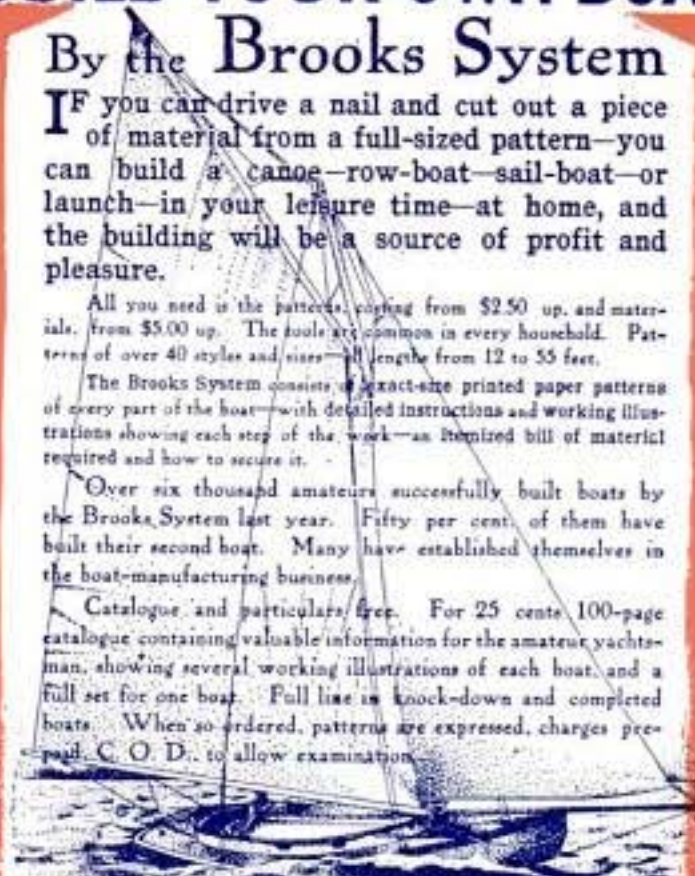 BUILD YOUR OWN BOAT
By the Brooks System
IF you can drive a nail and cut out a piece
of material from a full-sized pattern—you
can build a canoe—row-boat—sail-boat—or
launch—in your leisure time—at home, and
the building will be a source of profit and
pleasure.
All you need is the patterns, costing from $2.50 up, and mater-
ials, from $5.00 up. The tools are common in every household. Pat-
terns of over 40 styles and sizes—all lengths from 12 to 55 feet.
The Brooks System consists of exact-size printed paper patterns
of every part of the boat—with detailed instructions and working illus-
trations showing each step of the work—an itemized bill of material
required and how to secure it.
Over six thousand amateurs successfully built boats by
the Brooks System last year. Fifty per cent. of them have
built their second boat. Many have established themselves in
the boat-manufacturing business.
Catalogue and particulars free. For 25 cents 100-page
catalogue containing valuable information for the amateur yachts-
man, showing several working illustrations of each boat, and a
full set for one boat. Full line in knock-down and completed
boats. When so ordered, patterns are expressed, charges pre-
paid, C. O. D., to allow examination.